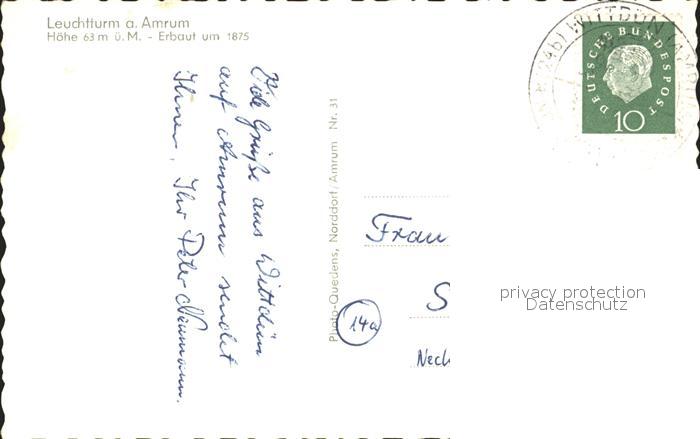 Leuchtturm a. Amrum
Höhe 63 m ü. M. - Erbaut um 1875
Viele Grüße aus Wittdün
auf Amrum sendet
Ihnen, Ihr Peter Neumann.
Photo-Quedens, Norddorf/Amrum Nr. 31
WITTDÜN (AM
DEUTSCHE BUNDESPOST
10
Frau
S
14a
Neck
privacy protection
Datenschutz